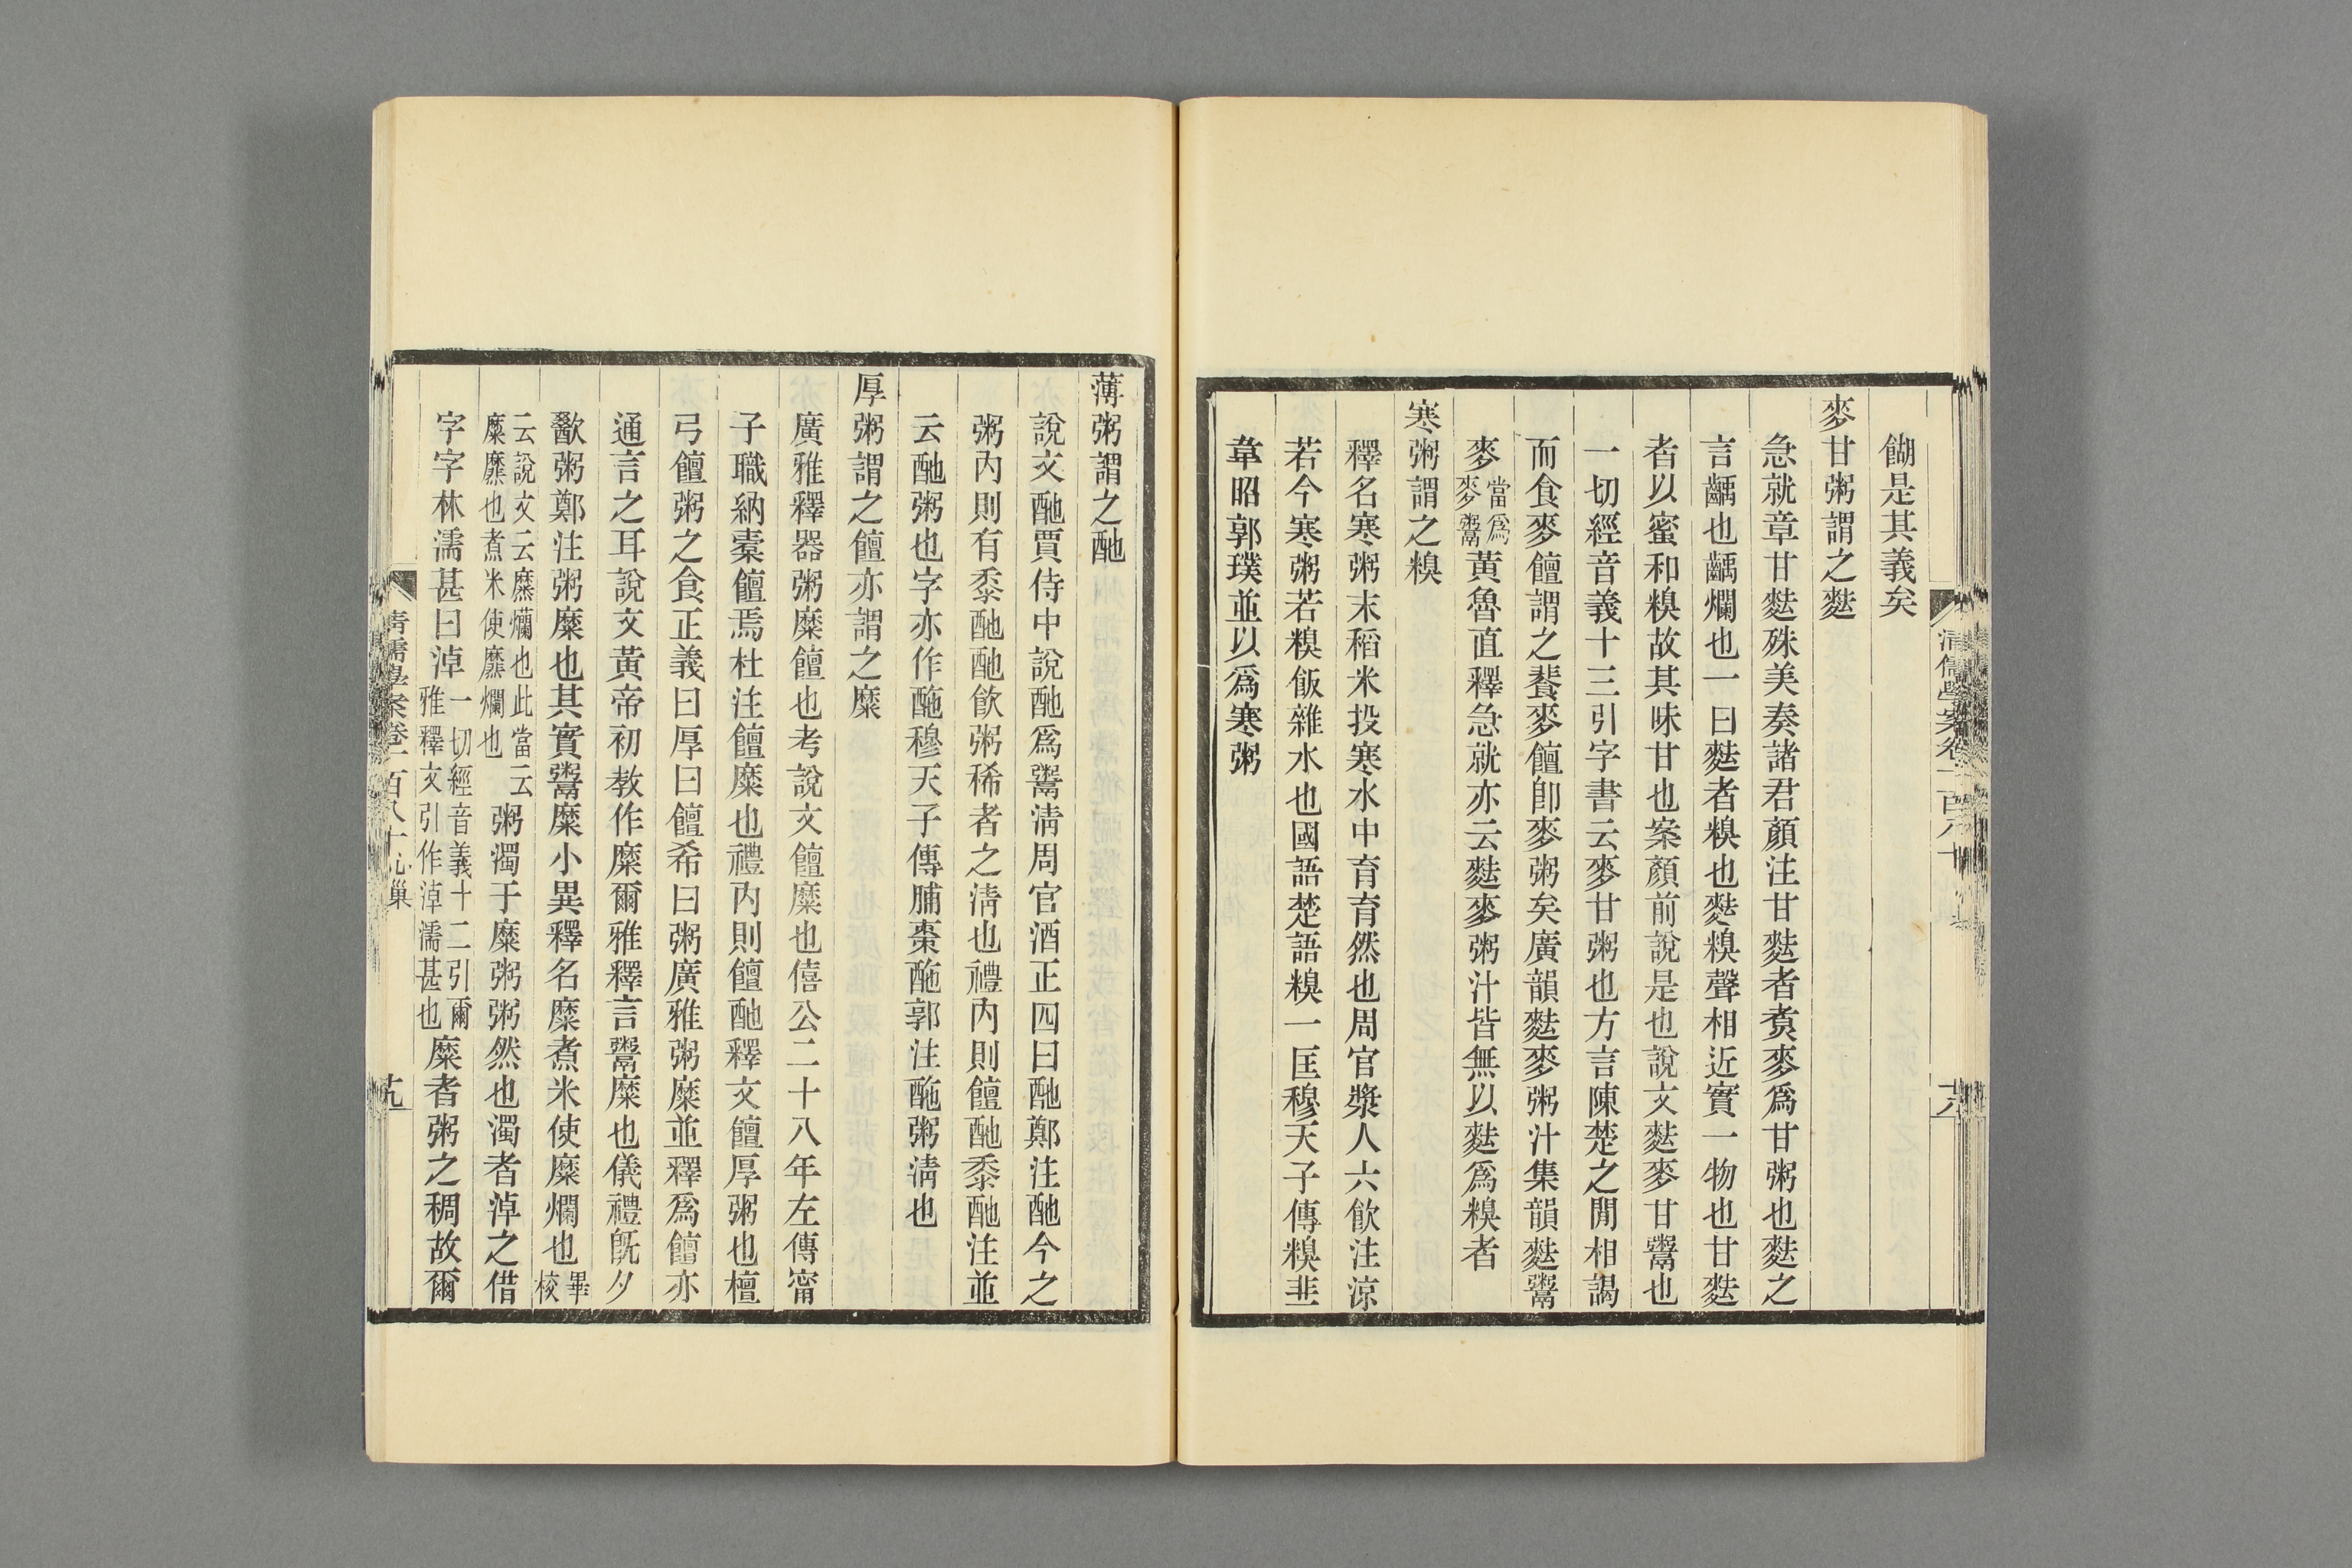 餬是其義矣
麥甘粥謂之麮
急就章甘麮殊美奏諸君顏注甘麮者煑麥爲甘粥也麮之
言齲也齲爛也一曰麮者糗也麮糗聲相近實一物也甘麮
者以蜜和糗故其味甘也案顏前說是也說文麮麥甘鬻也
一切經音義十三引字書云麥甘粥也方言陳楚之閒相謁
而食麥饘謂之餥麥饘卽麥粥矣廣韻麮麥粥汁集韻麮鬻
麥當爲麥鬻黃魯直釋急就亦云麮麥粥汁皆無以麮爲糗者
寒粥謂之糗
釋名寒粥末稻米投寒水中育育然也周官漿人六飮注涼
若今寒粥若糗飯雜水也國語楚語糗一匡穆天子傳糗韭
韋昭郭璞並以爲寒粥
清儒學案卷一百八十
十八
薄粥謂之酏
說文酏賈侍中說酏爲鬻淸周官酒正四曰酏鄭注酏今之
粥內則有黍酏酏飮粥稀者之淸也禮內則饘酏黍酏注並
云酏粥也字亦作酏穆天子傳脯棗酏郭注酏粥淸也
厚粥謂之饘亦謂之糜
廣雅釋器粥糜饘也考說文饘糜也僖公二十八年左傳甯
子職納橐饘焉杜注饘糜也禮內則饘酏釋文饘厚粥也檀
弓饘粥之食正義曰厚曰饘希曰粥廣雅粥糜並釋爲饘亦
通言之耳說文黃帝初教作糜爾雅釋言鬻糜也儀禮旣夕
歠粥鄭注粥糜也其實鬻糜小異釋名糜煮米使糜爛也畢校
云說文云糜爛也此當云糜靡也煮米使靡爛也粥濁于糜粥粥然也濁者淖之借
字字林濡甚曰淖一切經音義十二引爾雅釋文引作淖濡甚也糜者粥之稠故爾
清儒學案卷一百八十 心巢
十九